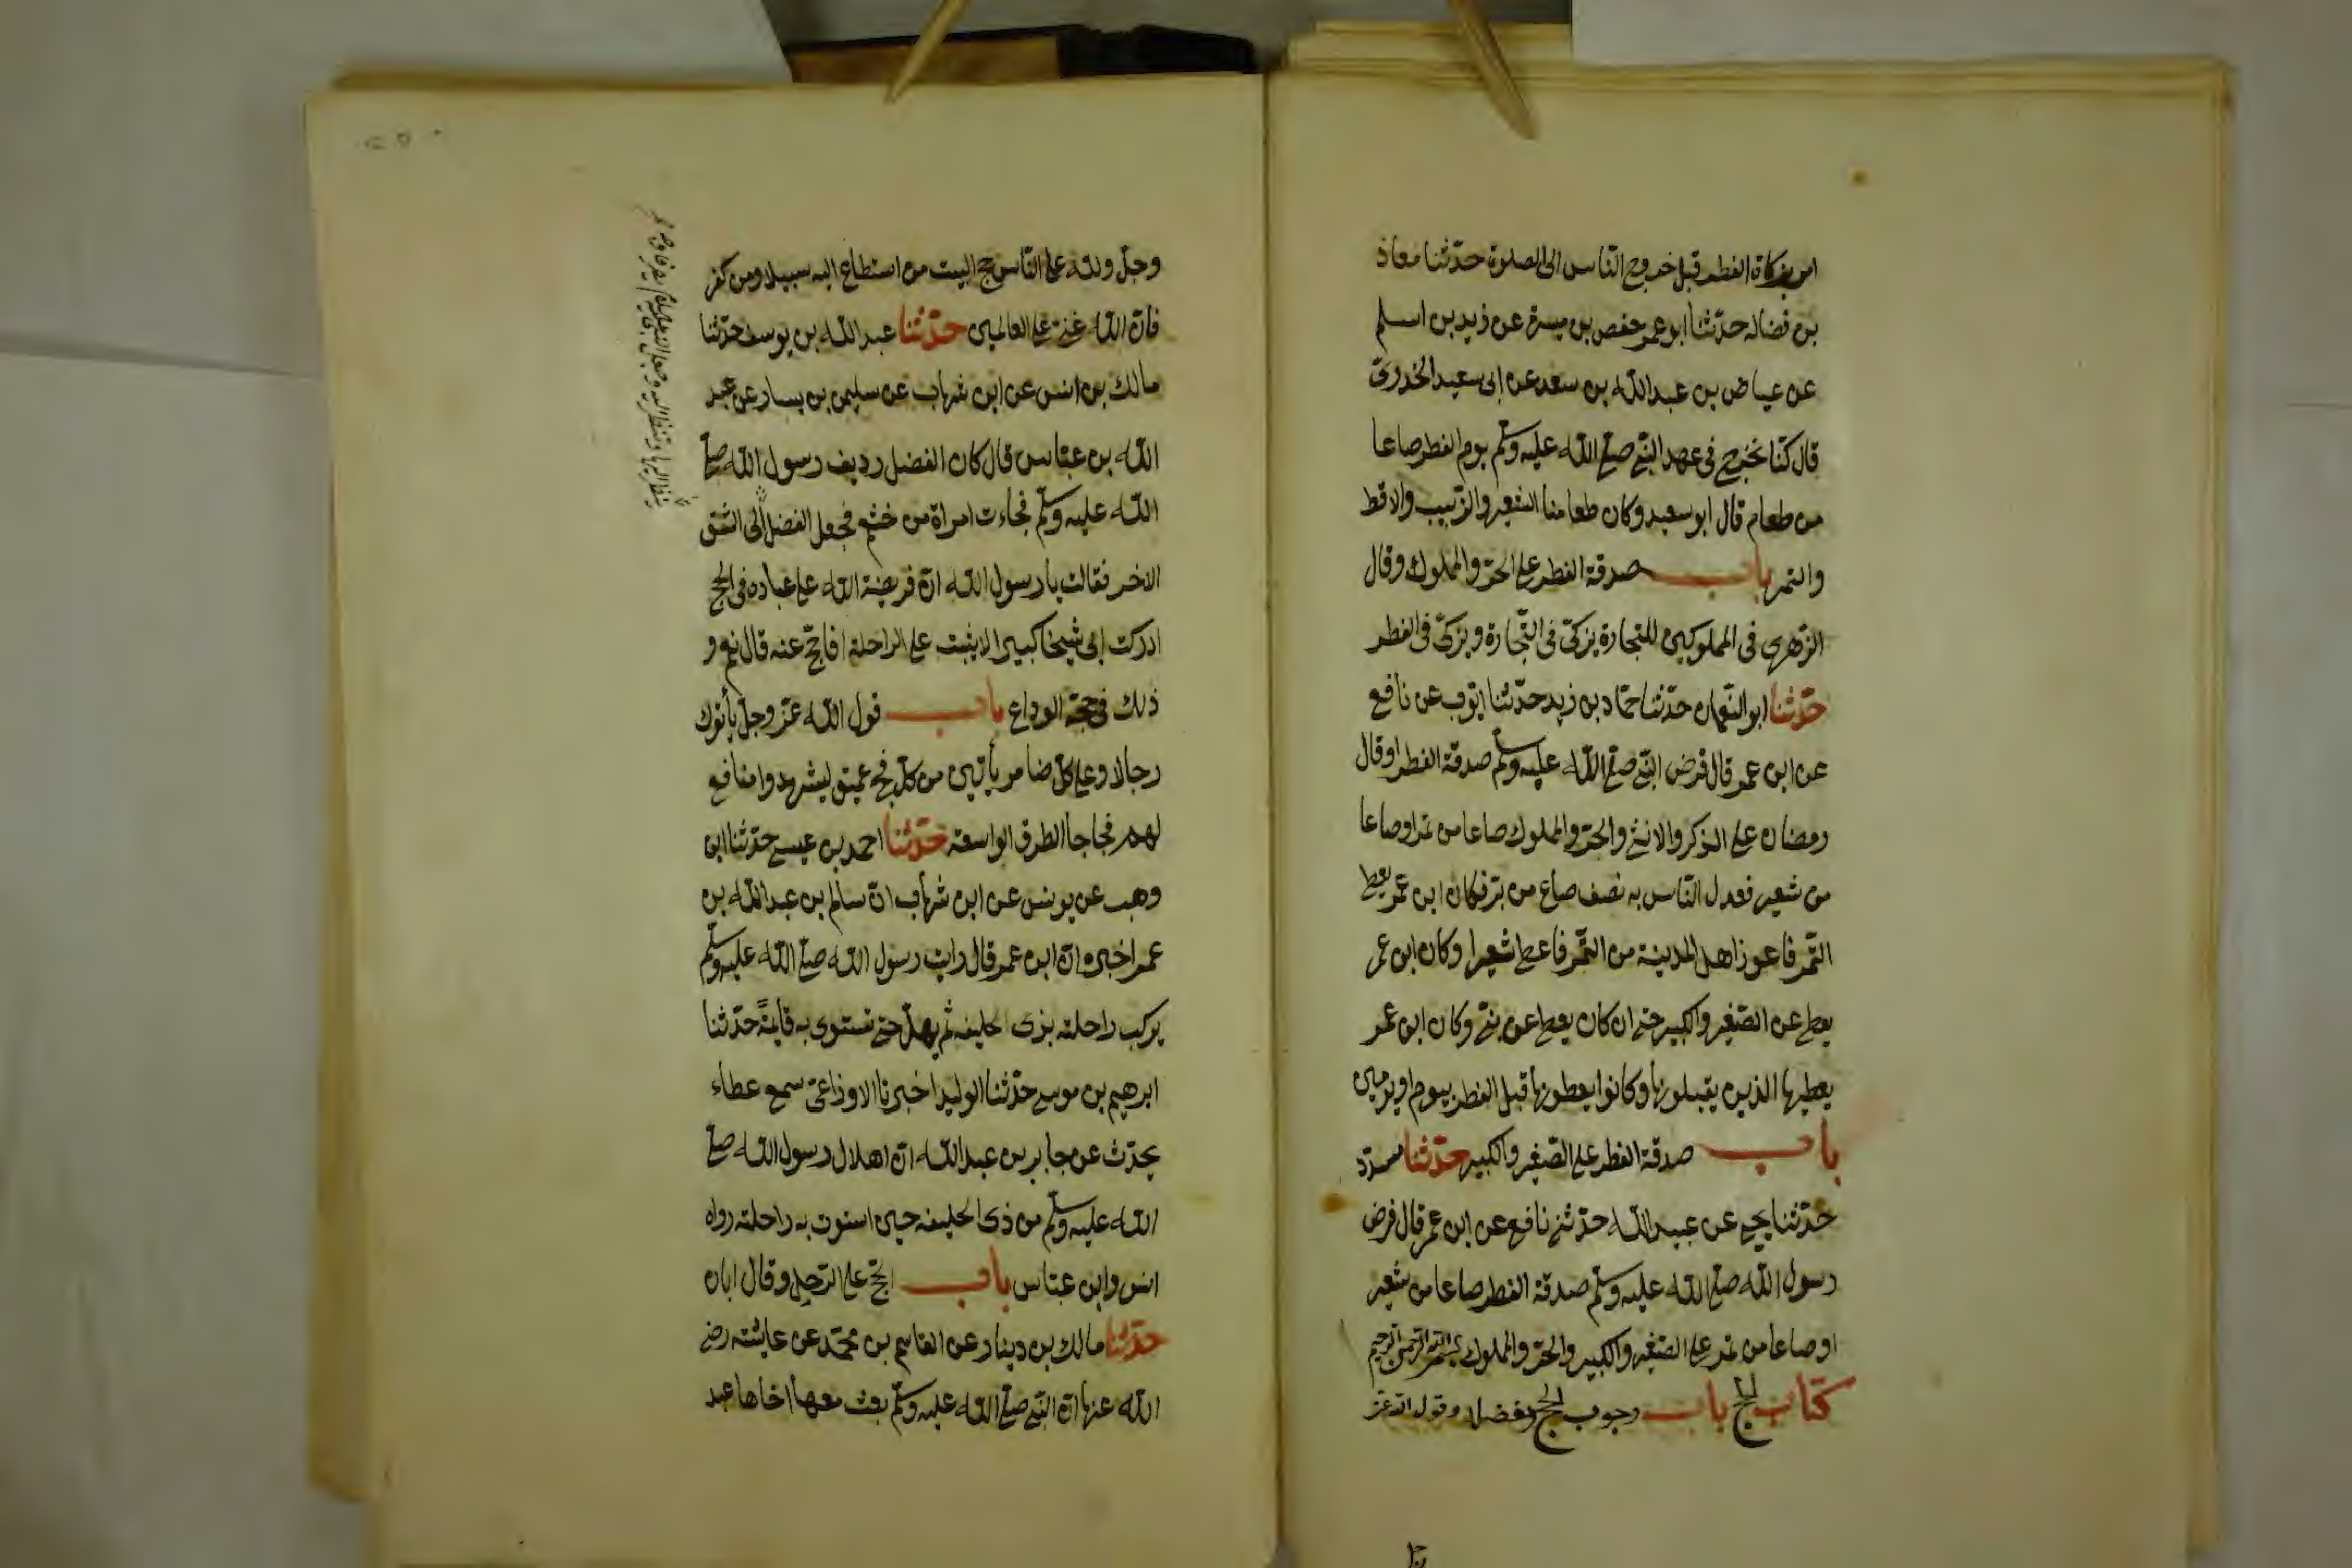 امر بزكاة الفطر قبل خروج الناس الى الصلوة حدّثنا معاذ
بن فضاله حدّثنا ابو عمر حفص بن ميسرة عن زيد بن اسلم
عن عياض بن عبد الله بن سعد عن ابى سعيد الخدرىّ
قال كنّا نخرج فى عهد النبىّ صلى الله عليه وسلّم يوم الفطر صاعا
من طعام قال ابو سعيد وكان طعامنا الشعير والزّبيب والاقط
والتمر باب صدقة الفطر على الحرّ والمملوك وقال
الزّهرى فى المملوكين للتجارة يزكّى فى التّجارة ويزكّى فى الفطر
حدّثنا ابو النّعمان حدّثنا حمّاد بن زيد حدّثنا ايّوب عن نافع
عن ابن عمر قال فرض النبىّ صلى الله عليه وسلّم صدقة الفطر او قال
رمضان على الذكر والانثى والحرّ والمملوك صاعا من تمر او صاعا
من شعير فعدل النّاس به نصف صاع من برّ فكان ابن عمر يعطى
التّمر فاعوز اهل المدينة من التّمر فاعطى شعيرا وكان ابن عمر
يعطى عن الصّغير والكبير حتى ان كان يعطى عن بنىّ وكان ابن عمر
يعطيها الذين يقبلونها وكانوا يعطونها قبل الفطر بيوم او يومين
باب صدقة الفطر على الصّغير والكبير حدّثنا مسدّد
حدّثنا يحيى عن عبيد الله حدّثنى نافع عن ابن عمر قال فرض
رسول الله صلى الله عليه وسلّم صدقة الفطر صاعا من شعير
او صاعا من تمر على الصّغير والكبير والحرّ والمملوك بسم الله الرحمن الرحيم
كتاب الحج باب وجوب الحج وفضله وقول الله عز
وجلّ ولله على النّاس حج البيت من استطاع اليه سبيلا ومن كفر
فانّ الله غنىّ على العالمين حدّثنا عبد الله بن يوسف حدّثنا
مالك بن انس عن ابن شهاب عن سليمن بن يسار عن عبد
الله بن عبّاس قال كان الفضل رديف رسول الله صلى
الله عليه وسلّم فجاءت امراة من خثعم فجعل الفضل الى الشق
الاخر فقالت يا رسول الله انّ فريضة الله على عباده فى الحج
ادركت ابى شيخا كبيرا لا يثبت على الراحلة افاحجّ عنه قال نعم و
ذلك فى حجة الوداع باب قول الله عزّ وجلّ يأتوك
رجالا وعلى كلّ ضامر يأتين من كلّ فج عميق ليشهدوا منافع
لهم فجاجا الطرق الواسعة حدّثنا احمد بن عيسى حدّثنا ابن
وهب عن يونس عن ابن شهاب انّ سالم بن عبد الله بن
عمر اخبره انّ ابن عمر قال رايت رسول الله صلى الله عليه وسلّم
يركب راحلته بذى الحليفه ثم يهلّ حتى تستوى به قايمةً حدّثنا
ابرهيم بن موسى حدّثنا الوليد اخبرنا الاوزاعىّ سمع عطاء
يحدّث عن جابر بن عبد الله انّ اهلال رسول الله صلى
الله عليه وسلّم من ذى الحليفه حين استوت به راحلته رواه
انس وابن عبّاس باب الحجّ على الرّحل وقال ابان
حدّثنا مالك بن دينار عن القاسم بن محمّد عن عايشه رضى
الله عنها انّ النبىّ صلى الله عليه وسلّم بعث معها اخاها عبد
ينظر اليها وتنظر اليه وجعل النبى صلى الله عليه وسلم يصرف وجه